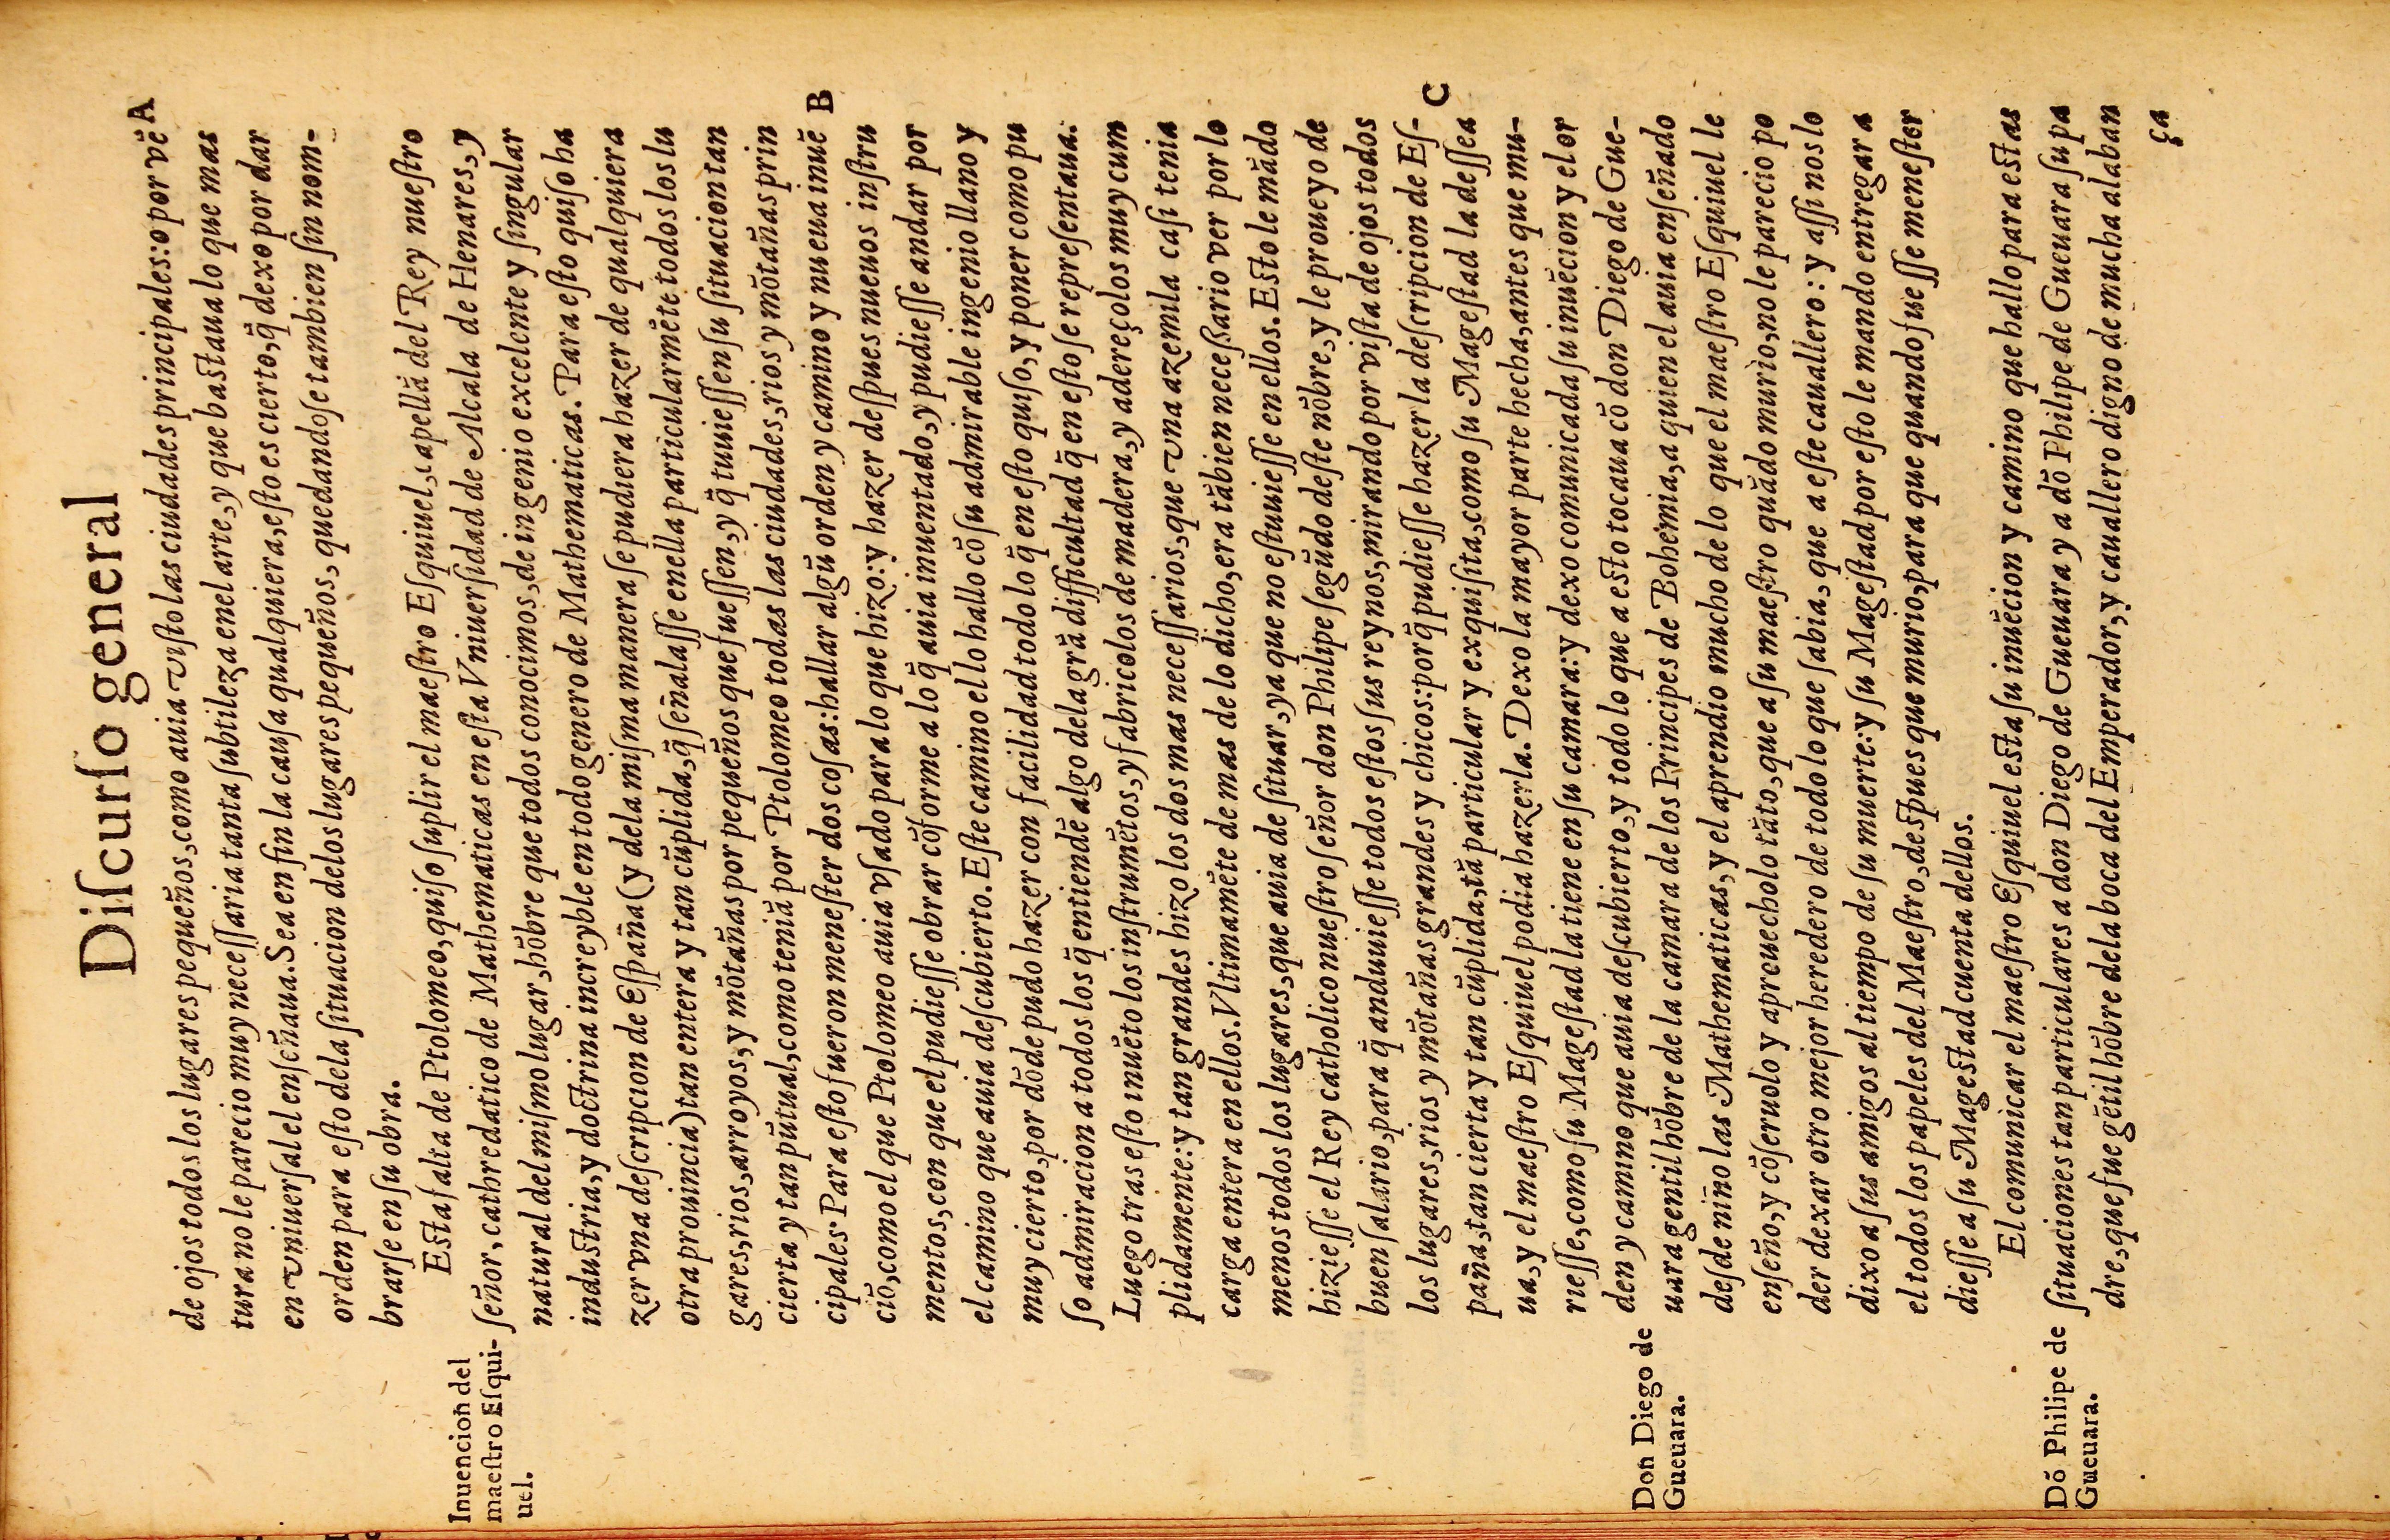 Diſcurſo general
de ojos todos los lugares pequeños, como auia viſto las ciudades principales: o por vẽ A
tura no le parecio muy neceſſaria tanta ſubtileza en el arte, y que baſtaua lo que mas
en vniuerſal el enſeñaua. Sea en fin la cauſa qualquiera, eſto es cierto, q̃ dexo por dar
orden para eſto de la ſituacion de los lugares pequeños, quedandoſe tambien ſin nom-
brarſe en ſu obra.
Eſta falta de Ptolomeo, quiſo ſuplir el maeſtro Eſquiuel, capellã del Rey nueſtro
Inuencion del
maeſtro Eſqui-
uel.
ſeñor, cathredatico de Mathematicas en eſta Vniuerſidad de Alcala de Henares, y
natural del miſmo lugar, hõbre que todos conocimos, de ingenio excelente y ſingular
induſtria, y doctrina increyble en todo genero de Mathematicas. Para eſto quiſo ha
zer vna deſcripcion de Eſpaña (y de la miſma manera ſe pudiera hazer de qualquiera
otra prouincia) tan entera y tam cũplida, q̃ ſeñalaſſe en ella particularmẽte todos los lu
gares, rios, arroyos, y mõtañas por pequeños que fueſſen, y q̃ tuuieſſen ſu ſituacion tan
cierta y tan pũtual, como teniã por Ptolomeo todas las ciudades, rios y mõtañas prin
cipales. Para eſto fueron meneſter dos coſas: hallar algũ orden y camino y nueua inuẽ B
ciõ, como el que Ptolomeo auia vſado para lo que hizo: y hazer deſpues nueuos inſtru
mentos, con que el pudieſſe obrar cõforme a lo q̃ auia inuentado, y pudieſſe andar por
el camino que auia deſcubierto. Eſte camino el lo hallo cõ ſu admirable ingenio llano y
muy cierto, por dõde pudo hazer con facilidad todo lo q̃ en eſto quiſo, y poner como pu
ſo admiracion a todos los q̃ entiendẽ algo de la grã difficultad q̃ en eſto ſe repreſentaua.
Luego tras eſto inuẽto los inſtrumẽtos, y fabricolos de madera, y adereçolos muy cum
plidamente: y tan grandes hizo los dos mas neceſſarios, que vna azemila caſi tenia
carga entera en ellos. Vltimamẽte de mas de lo dicho, era tãbien neceſſario ver por lo
menos todos los lugares, que auia de ſituar, ya que no eſtuuieſſe en ellos. Eſto le mãdo
hizieſſe el Rey catholico nueſtro ſeñor don Philipe ſegũdo deſte nõbre, y le proueyo de
buen ſalario, para q̃ anduuieſſe todos eſtos ſus reynos, mirando por viſta de ojos todos
los lugares, rios y mõtañas grandes y chicos: por q̃ pudieſſe hazer la deſcripcion de Eſ- C
paña, tan cierta y tan cũplida, tã particular y exquiſita, como ſu Mageſtad la deſſea
ua, y el maeſtro Eſquiuel podia hazerla. Dexo la mayor parte hecha, antes que mu-
rieſſe, como ſu Mageſtad la tiene en ſu camara: y dexo comunicada ſu inuẽcion y el or
den y camino que auia deſcubierto, y todo lo que a eſto tocaua cõ don Diego de Gue-
Don Diego de
Gueuara.
uara gentil hõbre de la camara de los Principes de Bohemia, a quien el auia enſeñado
deſde niño las Mathematicas, y el aprendio mucho de lo que el maeſtro Eſquiuel le
enſeño, y cõſeruolo y aprouecholo tãto, que a ſu maeſtro quãdo murio, no le parecio po
der dexar otro mejor heredero de todo lo que ſabia, que a eſte cauallero: y aſſi nos lo
dixo a ſus amigos al tiempo de ſu muerte: y ſu Mageſtad por eſto le mando entregar a
el todos los papeles del Maeſtro, deſpues que murio, para que quando fueſſe meneſter
dieſſe a ſu Mageſtad cuenta dellos.
El comunicar el maeſtro Eſquiuel eſta ſu inuẽcion y camino que hallo para eſtas
Dõ Philipe de
Gueuara.
ſituaciones tan particulares a don Diego de Gueuara y a dõ Philipe de Gueuara ſu pa
dre, que fue gẽtil hõbre de la boca del Emperador, y cauallero digno de mucha alaban
ça